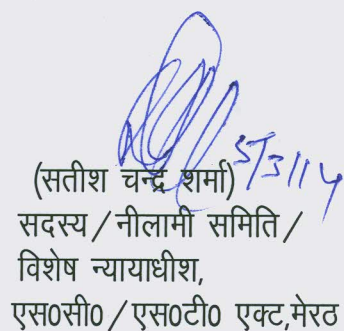 5/3/14
(सतीश चन्द्र शर्मा)
सदस्य/नीलामी समिति/
विशेष न्यायाधीश,
एस0सी0/एस0टी0 एक्ट,मेरठ